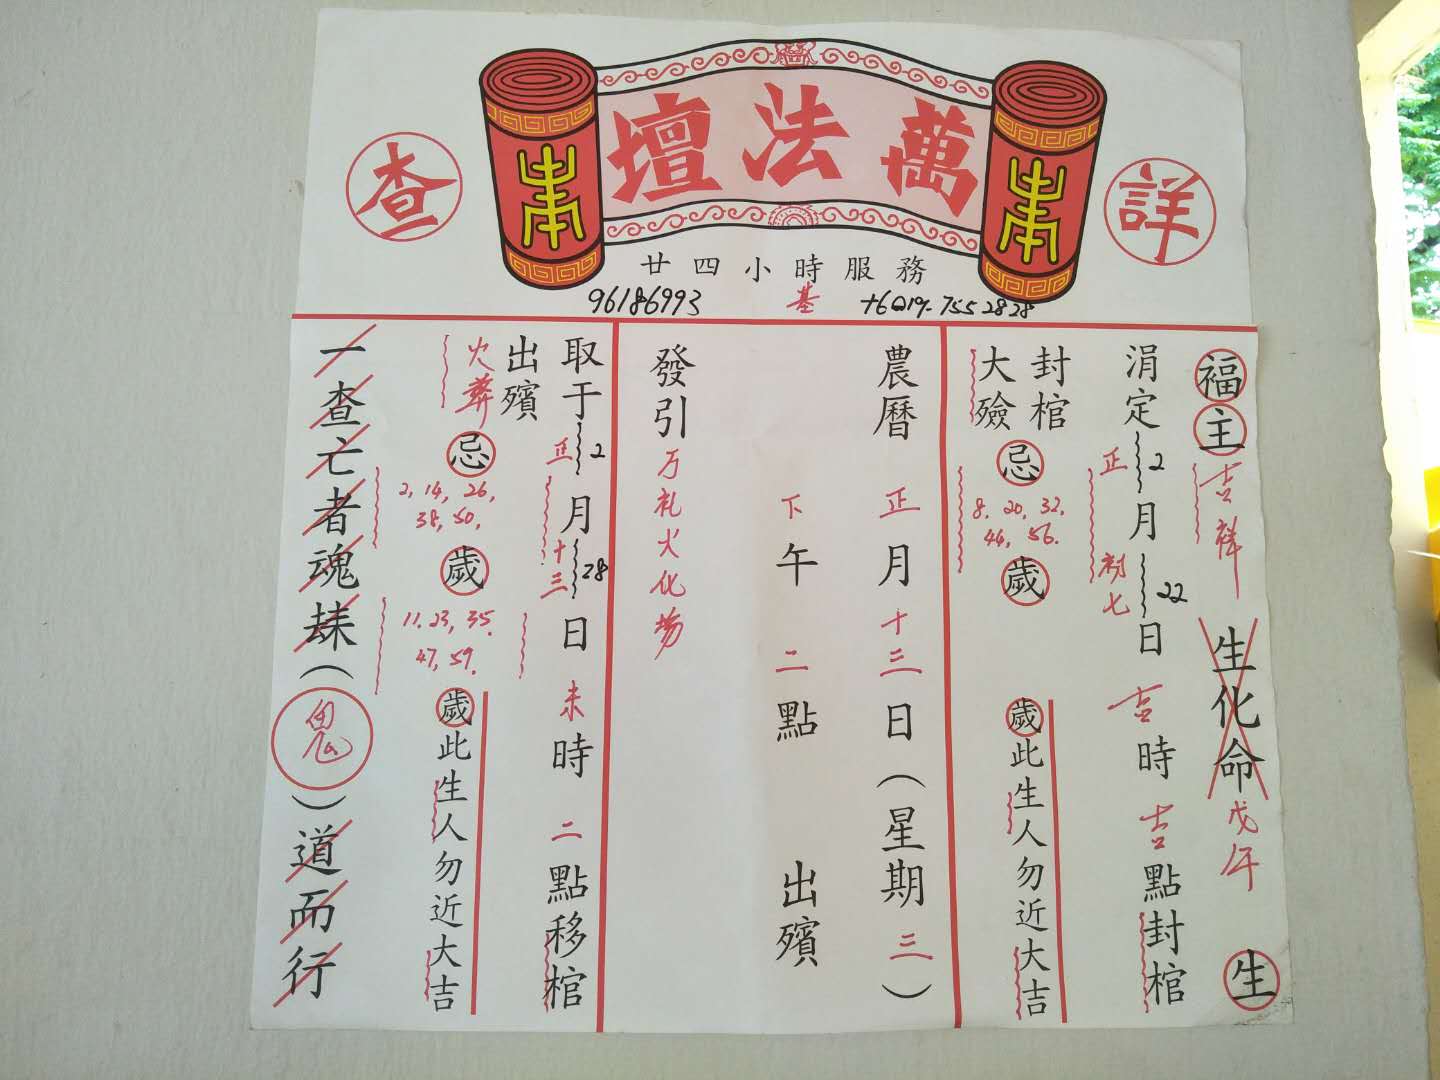 萬法壇
詳
查
廿四小時服務
96186993
基
+6019-7552828
福主吉祥生化命戊午生
涓定正2月初七22日吉時吉點封棺
封棺
大殮
忌
8. 20, 32,
44, 56.
歲
歲此生人勿近大吉
農曆正月十三日（星期三）
下午二點出殯
發引万礼火化场
取于正2月十三28日未時二點移棺
出殯
火葬
忌
2, 14, 26,
38, 50,
歲
11. 23, 35.
47, 59.
歲此生人勿近大吉
一查亡者魂
（鬼）道而行